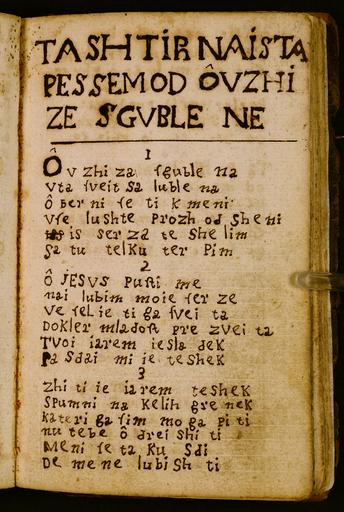 TASHTIRNAISTA
PESSEM OD ÔVZHI
ZE SGVBLE NE
1
Ôv zhi za ſguble na
vta ſveit Sa luble na
ô ber ni ſe ti k meni
vſe luſhte Prozh od Sheni
is ser za te She lim
Sa tu telku ter Pim
2
Ô JESVS Puſti me
nai lubim moie ſer ze
ve ſel ie ti ga ſvei ta
DOkler mladoſt pre zvei ta
TVOi iarem ieſla dek
Pa Sdai mi ie teShek
3
Zhi ti ie iarem teShek
Spumni na Kelih gre nek
Kateri ga ſim mo ga Pi ti
nu tebe ô drei Shi ti
Meni ſe ta ku Sdi
De me ne lubiSh ti